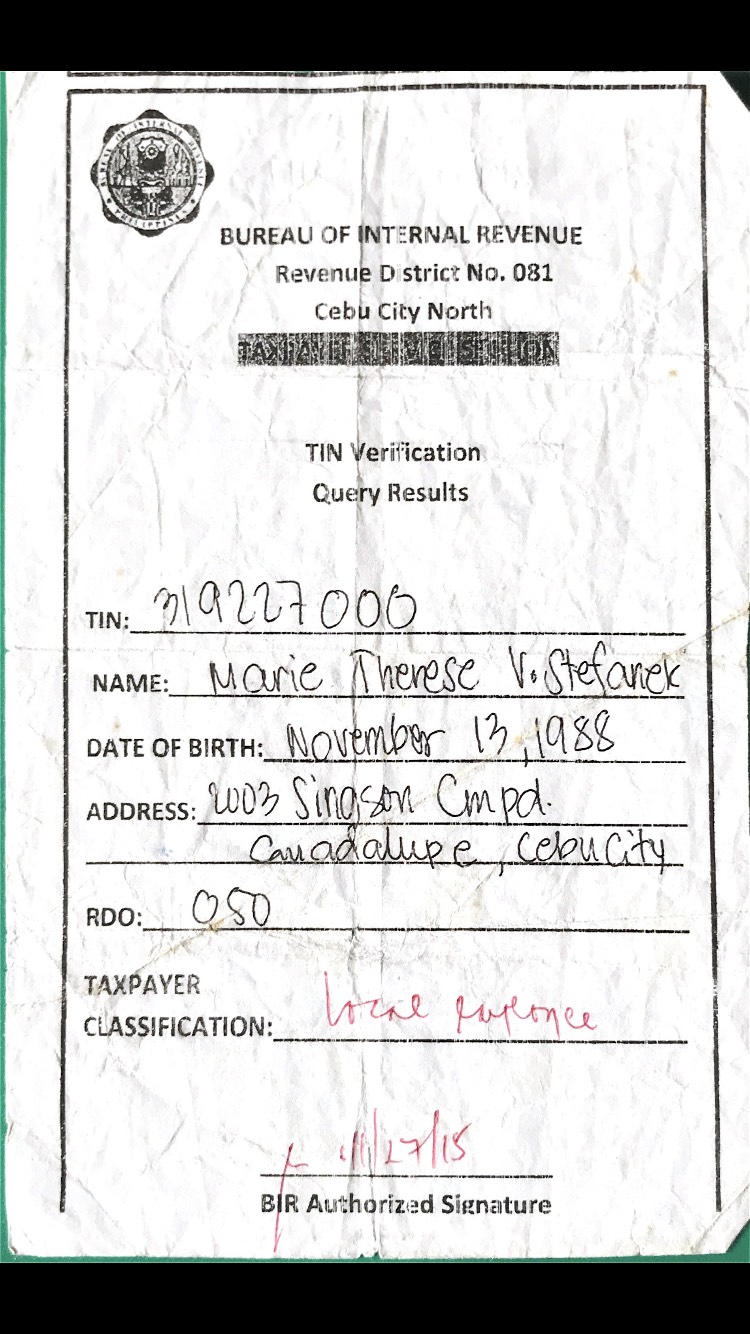 BUREAU OF INTERNAL REVENUE PHILIPPINES
BUREAU OF INTERNAL REVENUE
Revenue District No. 081
Cebu City North
TIN Verification
Query Results
TIN: 319227000
NAME: Marie Therese V. Stefanek
DATE OF BIRTH: November 13, 1988
ADDRESS: 2003 Singson Cmpd.
Guadalupe, Cebu City
RDO: 050
TAXPAYER
CLASSIFICATION: Local
11/27/15
BIR Authorized Signature